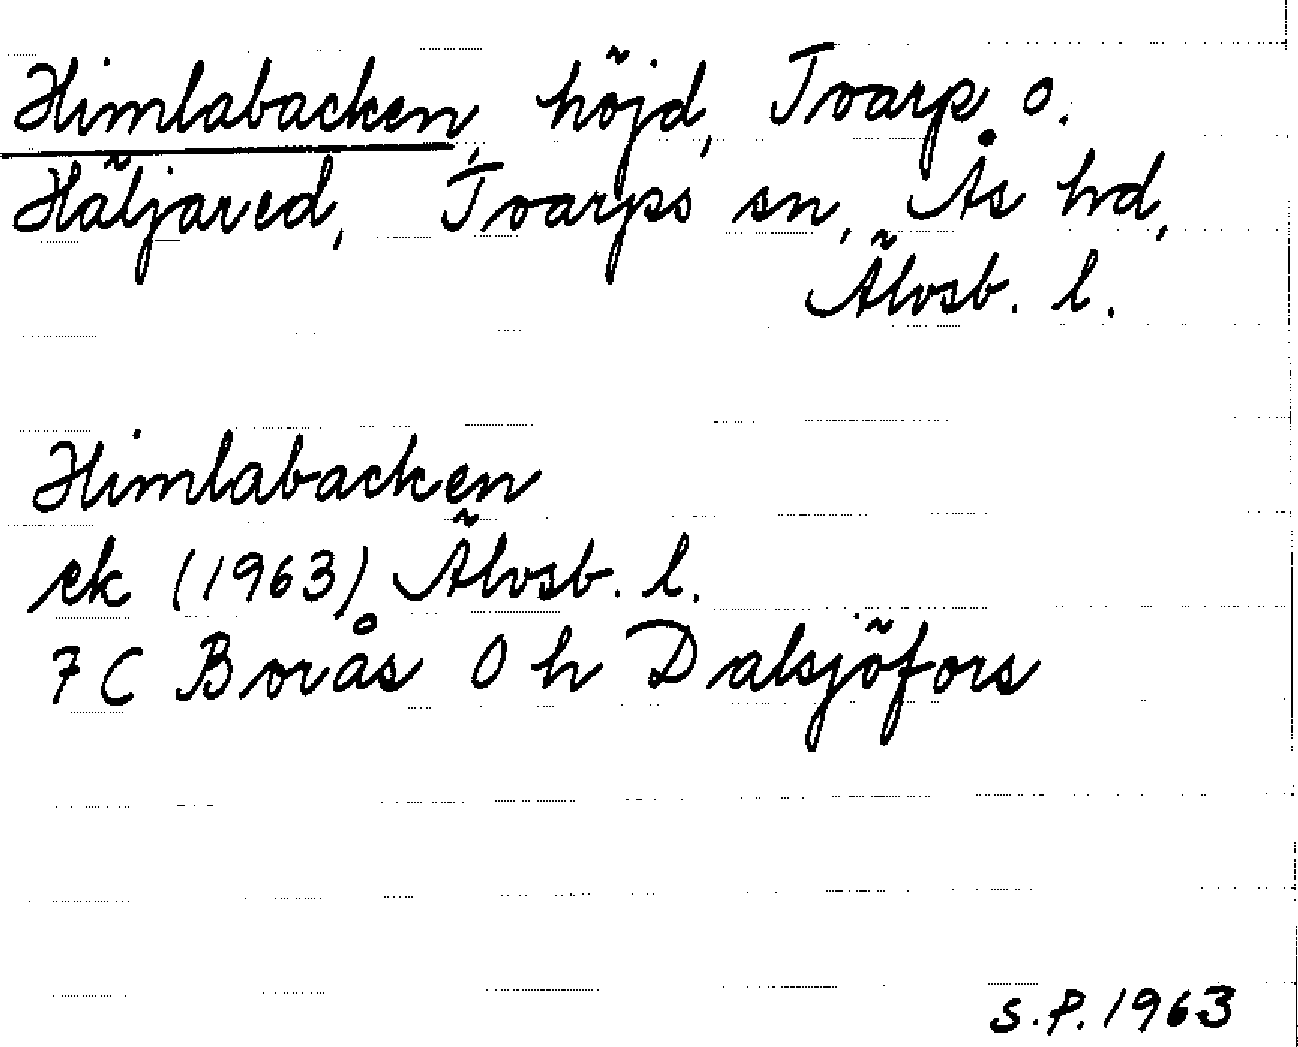 Himlabacken, höjd, Tvarp o.
Häljared, Tvarps sn, Ås hd,
Älvsb. l.
Himlabacken
ek (1963) Älvsb. l.
7 C Borås 0 h Dalsjöfors
S.P. 1963